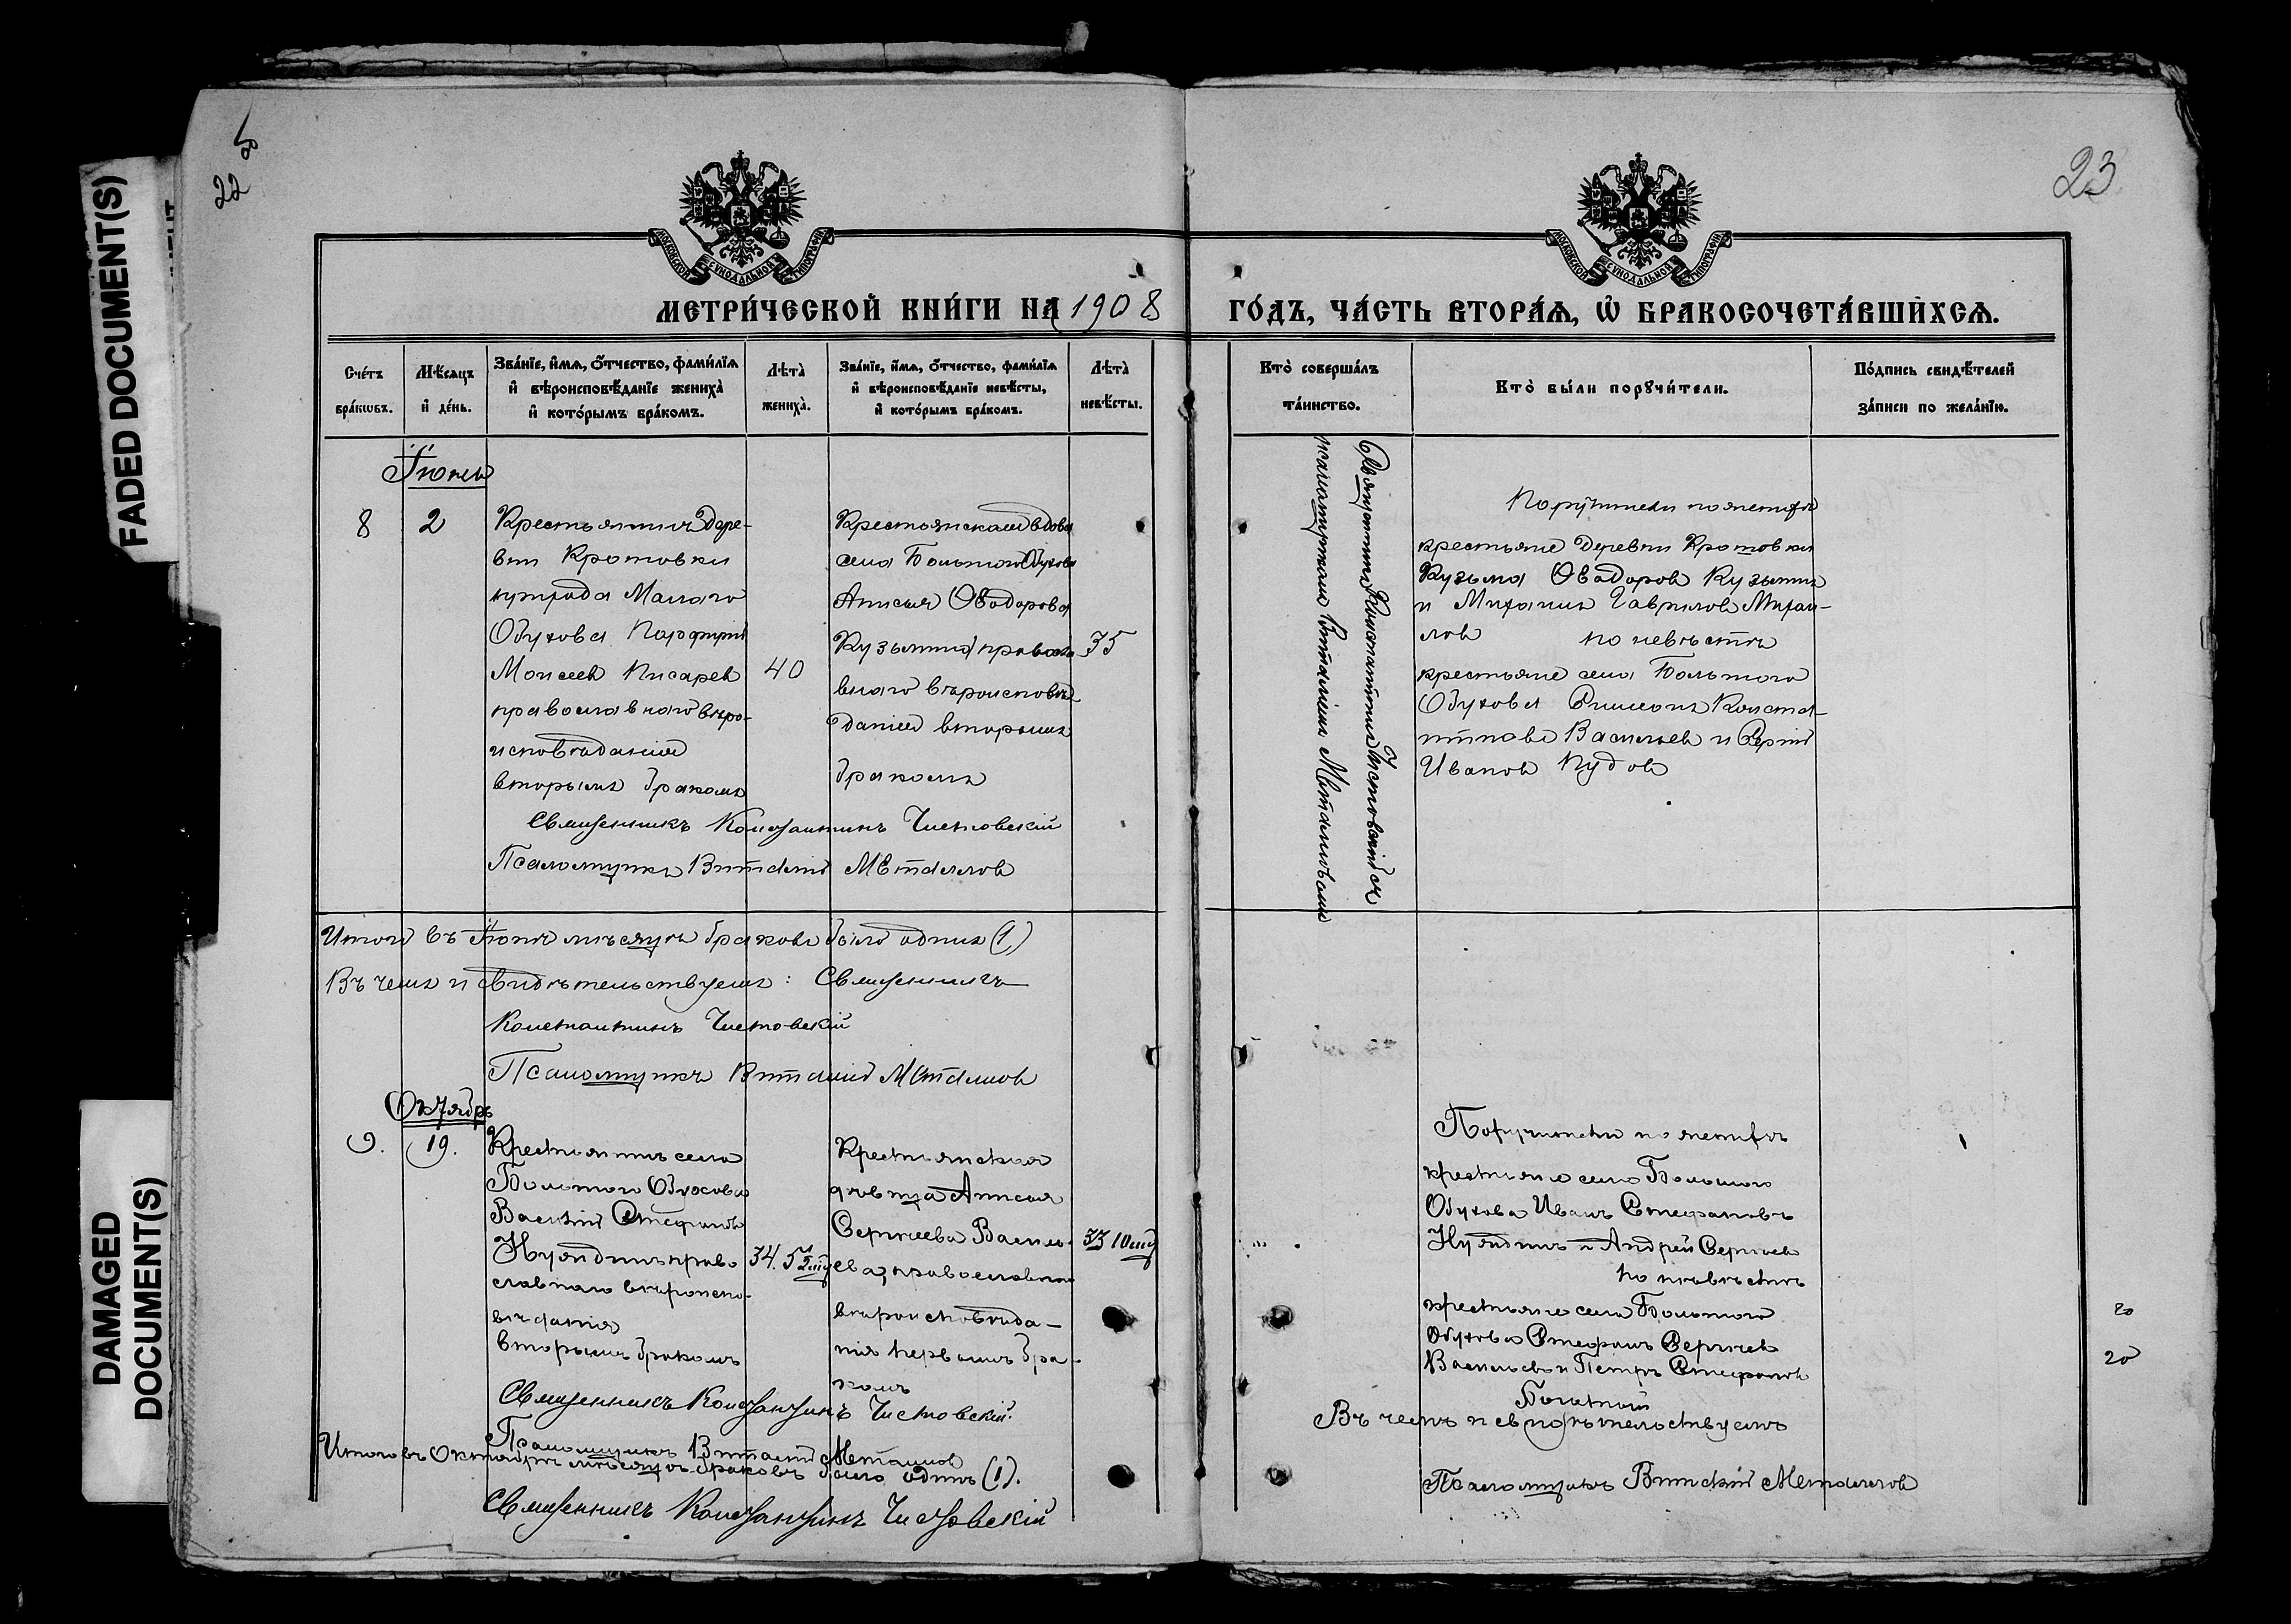 FADED DOCUMENT(S)
DAMAGED
DOCUMENT(S)
22
23
МОСКОВСКОЙ СѴНОДАЛЬНОЙ ТИПОГРАФІИ
МОСКОВСКОЙ СѴНОДАЛЬНОЙ ТИПОГРАФІИ
МЕТРИ́ЧЕСКОЙ КНИ́ГИ НА 1908
ГО́ДЪ, ЧА́СТЬ ВТОРА́Ѧ, Ѡ҆ БРАКОСОЧЕТА́ВШИХСѦ.
Сче́тъ
бра́кѡвъ.
Мѣ́сѧцъ
и҆ де́нь.
Зва́нїе, и҆́мѧ, ѻ҆́тчество, фами́лїѧ
и҆ вѣроисповѣ́данїе жениха̀
и҆ кото́рымъ бра́комъ.
Лѣта̀
жениха̀.
Зва́нїе, и҆́мѧ, ѻ҆́тчество, фами́лїѧ
и҆ вѣроисповѣ́данїе невѣ́сты,
и҆ кото́рымъ бра́комъ.
Лѣта̀
невѣ́сты.
Кто̀ соверша́лъ
та́инство.
Кто̀ бы́ли порꙋчи́тели.
По́дпись свидѣ́телей
за́писи по жела́нїю.
Іюнь
8
2
Крестьянинъ дере-
вни Кротовки
прихода Малаго
Обухова Порфирій
Моисеев Писарев
православнаго вѣро-
исповѣданія
вторымъ бракомъ
40
Крестьянская вдова
села Большого Обухова
Анисья Ѳеодорова
Кузьмина православ-
внаго вѣроисповѣ-
данія вторымъ
бракомъ
35
Священникъ Константинъ Чистовскій съ
псаломщикомъ Виталіемъ Металловымъ
Поручители по женихѣ
крестьяне деревни Кротовки
Кузьма Ѳеодоров Кузьмин
и Михаилъ Гаврилов Михаи-
лов по невѣстѣ
крестьяне села Большого
Обухова Симеонъ Конста-
нтинов Васильев и Сергій
Иванов Пудов
Священникъ Константинъ Чистовскій
Псаломщикъ Виталій Металлов
Итого въ Іюнѣ мѣсяцѣ браков было одинъ (1)
Въ чемъ и свидѣтельствуемъ: Священникъ
Константинъ Чистовскій
Псаломщикъ Виталій Металлов
Октябрь
9.
19.
Крестьянинъ села
Большого Обухова
Василій Стефановъ
право-
славнаго вѣроиспо-
вѣданія
вторымъ бракомъ
34. 5
Крестьянская
дѣвица Анисья
Сергеева Василь-
ева, православнаго
вѣроисповѣда-
нія первымъ бра-
комъ
33 10
Поручители по женихѣ
крестьяне села Большого
Обухова Иванъ Стефановъ
и Андрей Сергеев
по невѣстѣ
крестьяне села Большого
Обухова Стефанъ Сергеев
Васильев и Петръ Стефанов
20
20
Священникъ Константинъ Чистовскій.
Псаломщикъ Виталій Металлов
Итого въ Октябрѣ мѣсяцѣ браковъ было одинъ (1).
Въ чемъ и свидѣтельствуемъ
Священникъ Константинъ Чистовскій
Псаломщикъ Виталій Металлов